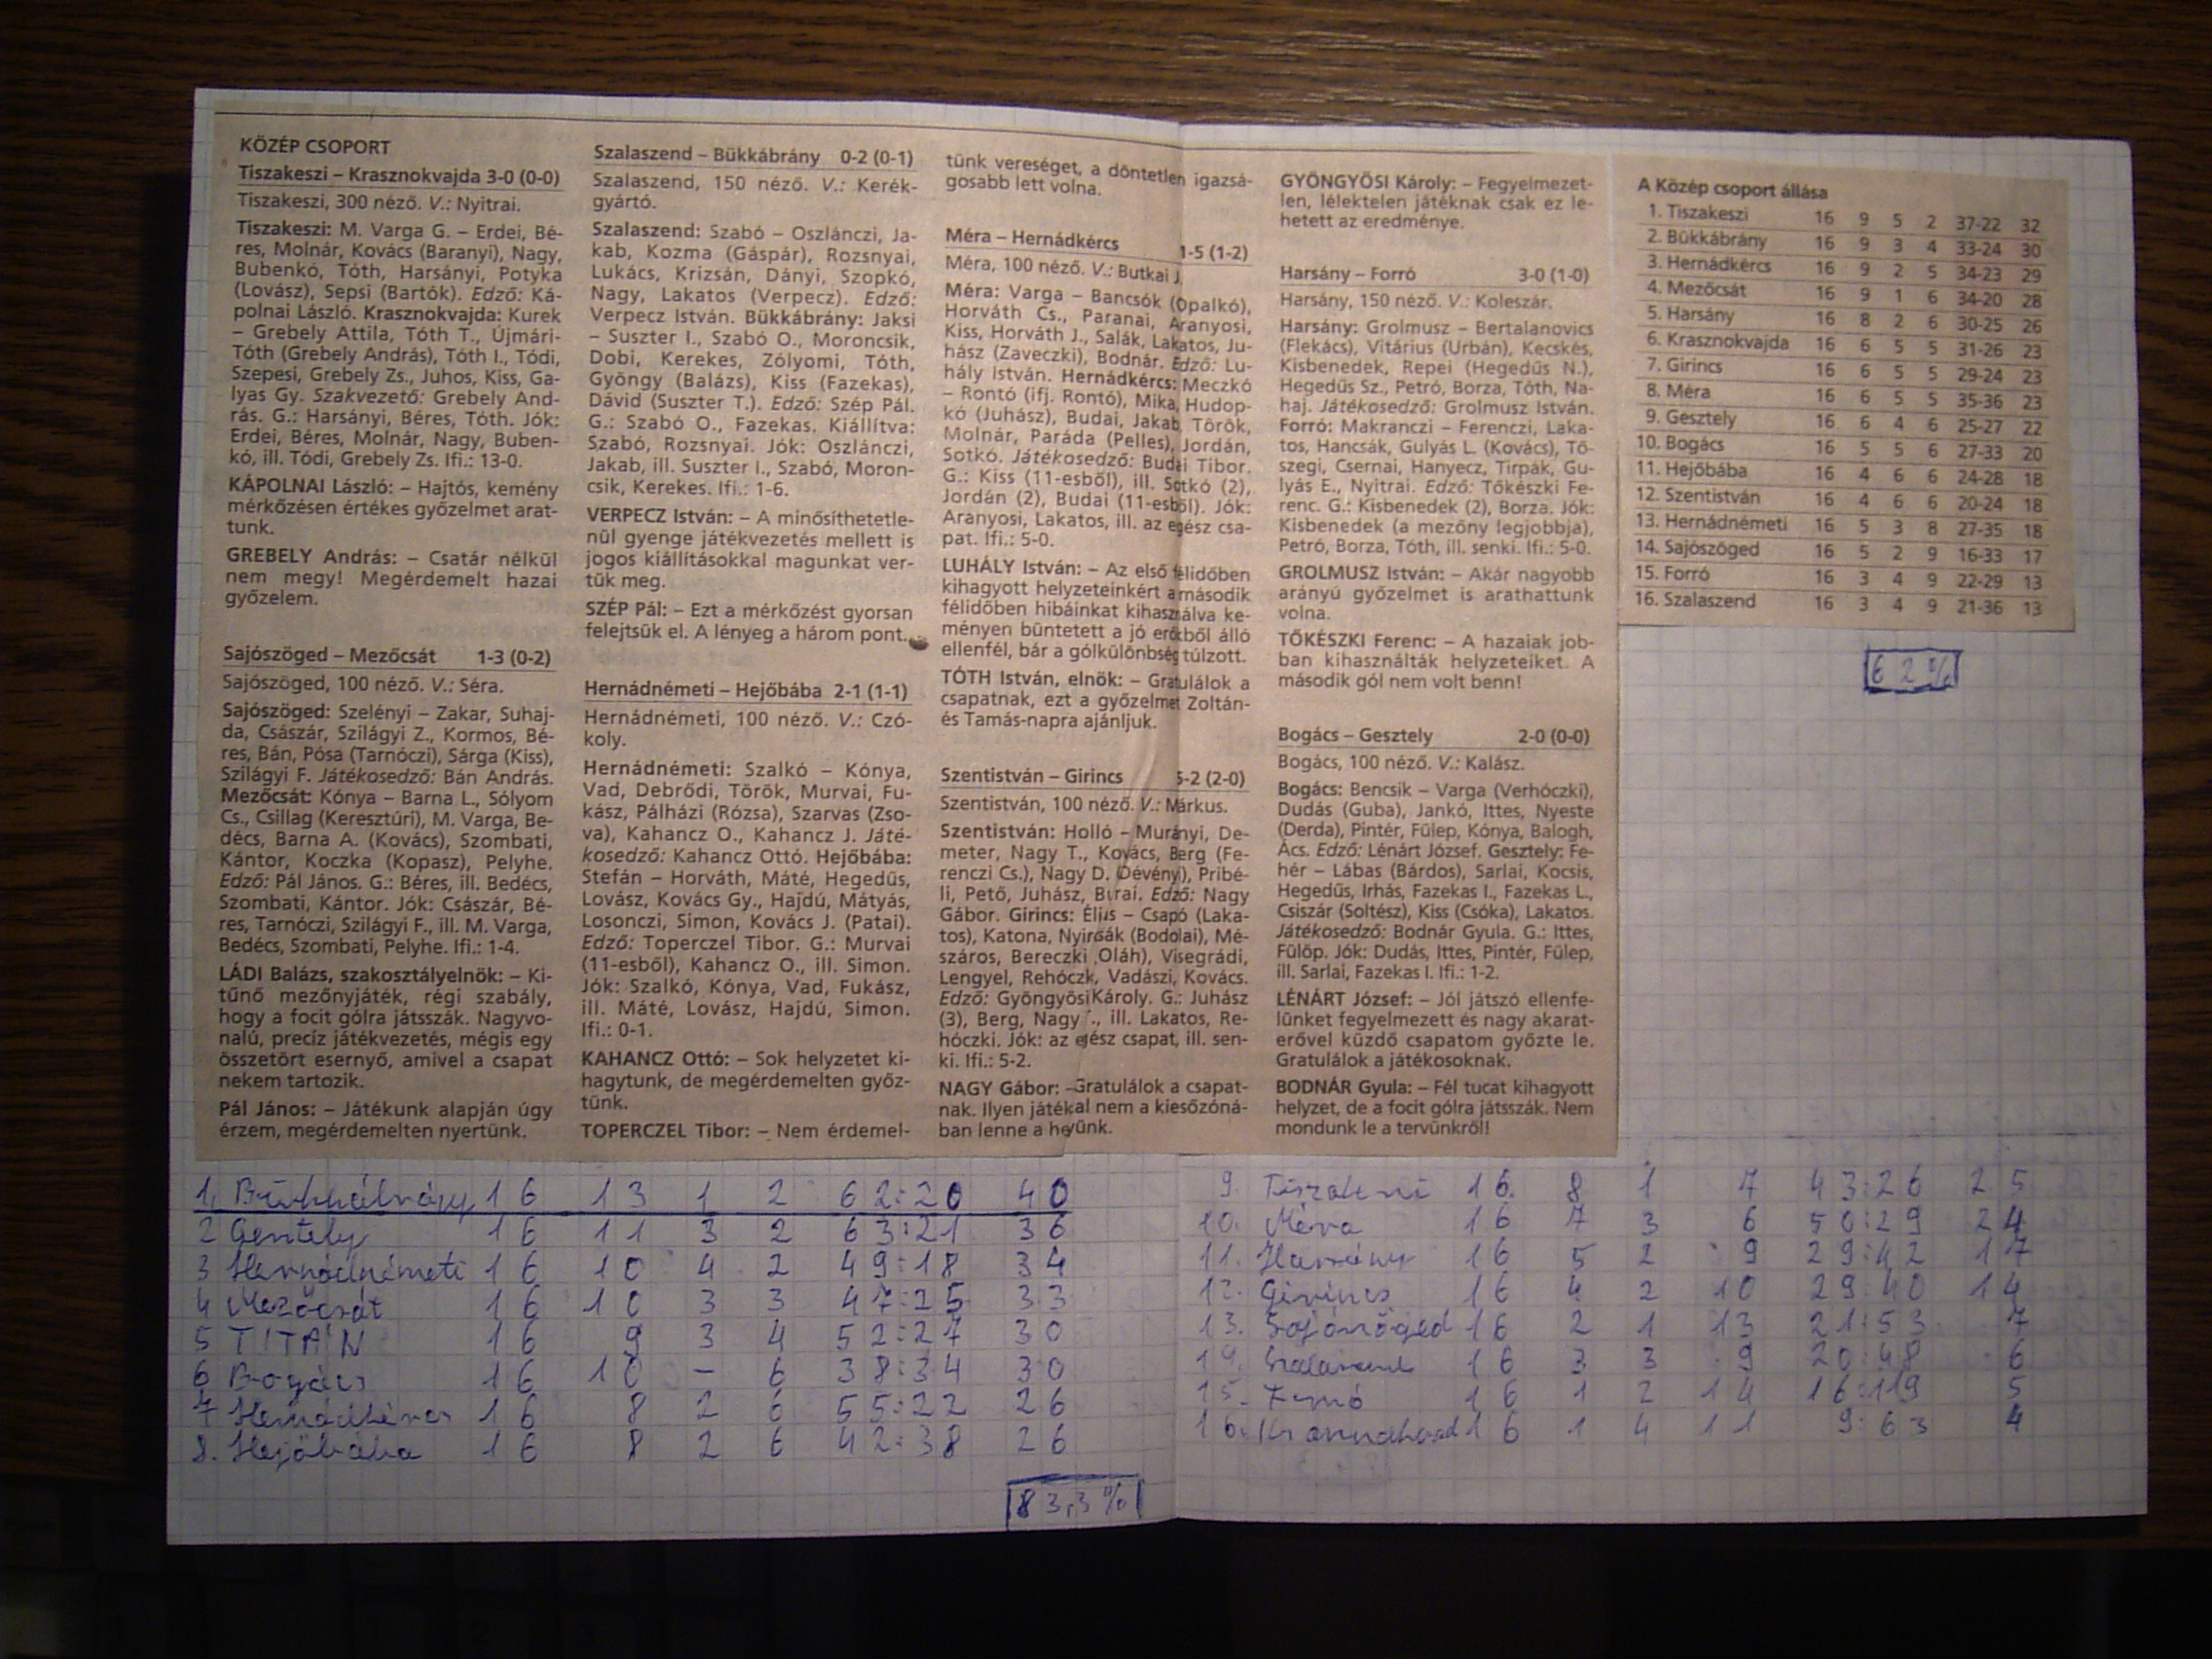 KÖZÉP CSOPORT
Tiszakeszi – Krasznokvajda 3-0 (0-0)
Tiszakeszi, 300 néző. V.: Nyitrai.
Tiszakeszi: M. Varga G. – Erdei, Bé-
res, Molnár, Kovács (Baranyi), Nagy,
Bubenkó, Tóth, Harsányi, Potyka
(Lovász), Sepsi (Bartók). Edző: Ká-
polnai László. Krasznokvajda: Kurek
– Grebely Attila, Tóth T., Újmári-
Tóth (Grebely András), Tóth I., Tódi,
Szepesi, Grebely Zs., Juhos, Kiss, Ga-
lyas Gy. Szakvezető: Grebely And-
rás. G.: Harsányi, Béres, Tóth. Jók:
Erdei, Béres, Molnár, Nagy, Buben-
kó, ill. Tódi, Grebely Zs. Ifi.: 13-0.
KÁPOLNAI László: – Hajtós, kemény
mérkőzésen értékes győzelmet arat-
tunk.
GREBELY András: – Csatár nélkül
nem megy! Megérdemelt hazai
győzelem.
Sajószöged – Mezőcsát 1-3 (0-2)
Sajószöged, 100 néző. V.: Séra.
Sajószöged: Szelényi – Zakar, Suhaj-
da, Császár, Szilágyi Z., Kormos, Bé-
res, Bán, Pósa (Tarnóczi), Sárga (Kiss),
Szilágyi F. Játékosedző: Bán András.
Mezőcsát: Kónya – Barna L., Sólyom
Cs., Csillag (Keresztúri), M. Varga, Be-
décs, Barna A. (Kovács), Szombati,
Kántor, Koczka (Kopasz), Pelyhe.
Edző: Pál János. G.: Béres, ill. Bedécs,
Szombati, Kántor. Jók: Császár, Bé-
res, Tarnóczi, Szilágyi F., ill. M. Varga,
Bedécs, Szombati, Pelyhe. Ifi.: 1-4.
LÁDI Balázs, szakosztályelnök: – Ki-
tűnő mezőnyjáték, régi szabály,
hogy a focit gólra játsszák. Nagyvo-
nalú, precíz játékvezetés, mégis egy
összetört esernyő, amivel a csapat
nekem tartozik.
Pál János: – Játékunk alapján úgy
érzem, megérdemelten nyertünk.
Szalaszend – Bükkábrány 0-2 (0-1)
Szalaszend, 150 néző. V.: Kerék-
gyártó.
Szalaszend: Szabó – Oszlánczi, Ja-
kab, Kozma (Gáspár), Rozsnyai,
Lukács, Krizsán, Dányi, Szopkó,
Nagy, Lakatos (Verpecz). Edző:
Verpecz István. Bükkábrány: Jaksi
– Suszter I., Szabó O., Moroncsik,
Dobi, Kerekes, Zólyomi, Tóth,
Gyöngy (Balázs), Kiss (Fazekas),
Dávid (Suszter T.). Edző: Szép Pál.
G.: Szabó O., Fazekas. Kiállítva:
Szabó, Rozsnyai. Jók: Oszlánczi,
Jakab, ill. Suszter I., Szabó, Moron-
csik, Kerekes. Ifi.: 1-6.
VERPECZ István: – A minősíthetetle-
nül gyenge játékvezetés mellett is
jogos kiállításokkal magunkat ver-
tük meg.
SZÉP Pál: – Ezt a mérkőzést gyorsan
felejtsük el. A lényeg a három pont.
Hernádnémeti – Hejőbába 2-1 (1-1)
Hernádnémeti, 100 néző. V.: Czó-
koly.
Hernádnémeti: Szalkó – Kónya,
Vad, Debrődi, Török, Murvai, Fu-
kász, Pálházi (Rózsa), Szarvas (Zso-
va), Kahancz O., Kahancz J. Játé-
kosedző: Kahancz Ottó. Hejőbába:
Stefán – Horváth, Máté, Hegedűs,
Lovász, Kovács Gy., Hajdú, Mátyás,
Losonczi, Simon, Kovács J. (Patai).
Edző: Toperczel Tibor. G.: Murvai
(11-esből), Kahancz O., ill. Simon.
Jók: Szalkó, Kónya, Vad, Fukász,
ill. Máté, Lovász, Hajdú, Simon.
Ifi.: 0-1.
KAHANCZ Ottó: – Sok helyzetet ki-
hagytunk, de megérdemelten győz-
tünk.
TOPERCZEL Tibor: – Nem érdemel-
tünk vereséget, a döntetlen igazsá-
gosabb lett volna.
Méra – Hernádkércs 1-5 (1-2)
Méra, 100 néző. V.: Butkai J.
Méra: Varga – Bancsók (Opalkó),
Horváth Cs., Paranai, Aranyosi,
Kiss, Horváth J., Salák, Lakatos, Ju-
hász (Zaveczki), Bodnár. Edző: Lu-
hály István. Hernádkércs: Meczkó
– Rontó (ifj. Rontó), Mika, Hudop-
kó (Juhász), Budai, Jakab, Török,
Molnár, Paráda (Pelles), Jordán,
Sotkó. Játékosedző: Budai Tibor.
G.: Kiss (11-esből), ill. Sotkó (2),
Jordán (2), Budai (11-esből). Jók:
Aranyosi, Lakatos, ill. az egész csa-
pat. Ifi.: 5-0.
LUHÁLY István: – Az első félidőben
kihagyott helyzeteinkért a második
félidőben hibáinkat kihasználva ke-
ményen büntetett a jó erőkből álló
ellenfél, bár a gólkülönbség túlzott.
TÓTH István, elnök: – Gratulálok a
csapatnak, ezt a győzelmet Zoltán-
és Tamás-napra ajánljuk.
Szentistván – Girincs 5-2 (2-0)
Szentistván, 100 néző. V.: Márkus.
Szentistván: Holló – Murányi, De-
meter, Nagy T., Kovács, Berg (Fe-
renczi Cs.), Nagy D. (Dévényi), Pribé-
li, Pető, Juhász, Burai. Edző: Nagy
Gábor. Girincs: Éliás – Csapó (Laka-
tos), Katona, Nyirsák (Bodolai), Mé-
száros, Bereczki Oláh), Visegrádi,
Lengyel, Rehóczk, Vadászi, Kovács.
Edző: Gyöngyösi Károly. G.: Juhász
(3), Berg, Nagy ., ill. Lakatos, Re-
hóczki. Jók: az egész csapat, ill. sen-
ki. Ifi.: 5-2.
NAGY Gábor: – Gratulálok a csapat-
nak. Ilyen játékal nem a kiesőzóná-
ban lenne a heyünk.
GYÖNGYÖSI Károly: – Fegyelmezet-
len, lélektelen játéknak csak ez le-
hetett az eredménye.
Harsány – Forró 3-0 (1-0)
Harsány, 150 néző. V.: Koleszár.
Harsány: Grolmusz – Bertalanovics
(Flekács), Vitárius (Urbán), Kecskés,
Kisbenedek, Repei (Hegedűs N.),
Hegedűs Sz., Petró, Borza, Tóth, Na-
haj. Játékosedző: Grolmusz István.
Forró: Makranczi – Ferenczi, Laka-
tos, Hancsák, Gulyás L. (Kovács), Tő-
szegi, Csernai, Hanyecz, Tirpák, Gu-
lyás E., Nyitrai. Edző: Tőkészki Fe-
renc. G.: Kisbenedek (2), Borza. Jók:
Kisbenedek (a mezőny legjobbja),
Petró, Borza, Tóth, ill. senki. Ifi.: 5-0.
GROLMUSZ István: – Akár nagyobb
arányú győzelmet is arathattunk
volna.
TŐKÉSZKI Ferenc: – A hazaiak job-
ban kihasználták helyzeteiket. A
második gól nem volt benn!
Bogács – Gesztely 2-0 (0-0)
Bogács, 100 néző. V.: Kalász.
Bogács: Bencsik – Varga (Verhóczki),
Dudás (Guba), Jankó, Ittes, Nyeste
(Derda), Pintér, Fülep, Kónya, Balogh,
Ács. Edző: Lénárt József. Gesztely: Fe-
hér – Lábas (Bárdos), Sarlai, Kocsis,
Hegedűs, Irhás, Fazekas I., Fazekas L.,
Csiszár (Soltész), Kiss (Csóka), Lakatos.
Játékosedző: Bodnár Gyula. G.: Ittes,
Fülöp. Jók: Dudás, Ittes, Pintér, Fülep,
ill. Sarlai, Fazekas I. Ifi.: 1-2.
LÉNÁRT József: – Jól játszó ellenfe-
lünket fegyelmezett és nagy akarat-
erővel küzdő csapatom győzte le.
Gratulálok a játékosoknak.
BODNÁR Gyula: – Fél tucat kihagyott
helyzet, de a focit gólra játsszák. Nem
mondunk le a tervünkről!
A Közép csoport állása
1. Tiszakeszi 16 9 5 2 37-22 32
2. Bükkábrány 16 9 3 4 33-24 30
3. Hernádkércs 16 9 2 5 34-23 29
4. Mezőcsát 16 9 1 6 34-20 28
5. Harsány 16 8 2 6 30-25 26
6. Krasznokvajda 16 6 5 5 31-26 23
7. Girincs 16 6 5 5 29-24 23
8. Méra 16 6 5 5 35-36 23
9. Gesztely 16 6 4 6 25-27 22
10. Bogács 16 5 5 6 27-33 20
11. Hejőbába 16 4 6 6 24-28 18
12. Szentistván 16 4 6 6 20-24 18
13. Hernádnémeti 16 5 3 8 27-35 18
14. Sajószöged 16 5 2 9 16-33 17
15. Forró 16 3 4 9 22-29 13
16. Szalaszend 16 3 4 9 21-36 13
62%
1. Bükkábrány 16 13 1 2 62:20 40
2 Gesztely 16 11 3 2 63:21 36
3 Hernádnémeti 16 10 4 2 49:18 34
4 Mezőcsát 16 10 3 3 47:25 33
5 TITÁN 16 9 3 4 52:27 30
6 Bogács 16 10 – 6 38:34 30
7 Hernádkércs 16 8 2 6 55:22 26
8. Hejőbába 16 8 2 6 42:38 26
83,3%
9. Tiszakeszi 16. 8 1 7 43:26 25
10. Méra 16 7 3 6 50:29 24
11. Harsány 16 5 2 9 29:42 17
12. Girincs 16 4 2 10 29:40 14
13. Sajószöged 16 2 1 13 21:53 7
14. Szalaszend 16 3 3 9 20:48 6
15. Forró 16 1 2 14 16:119 5
16. 16 1 4 11 9:63 4